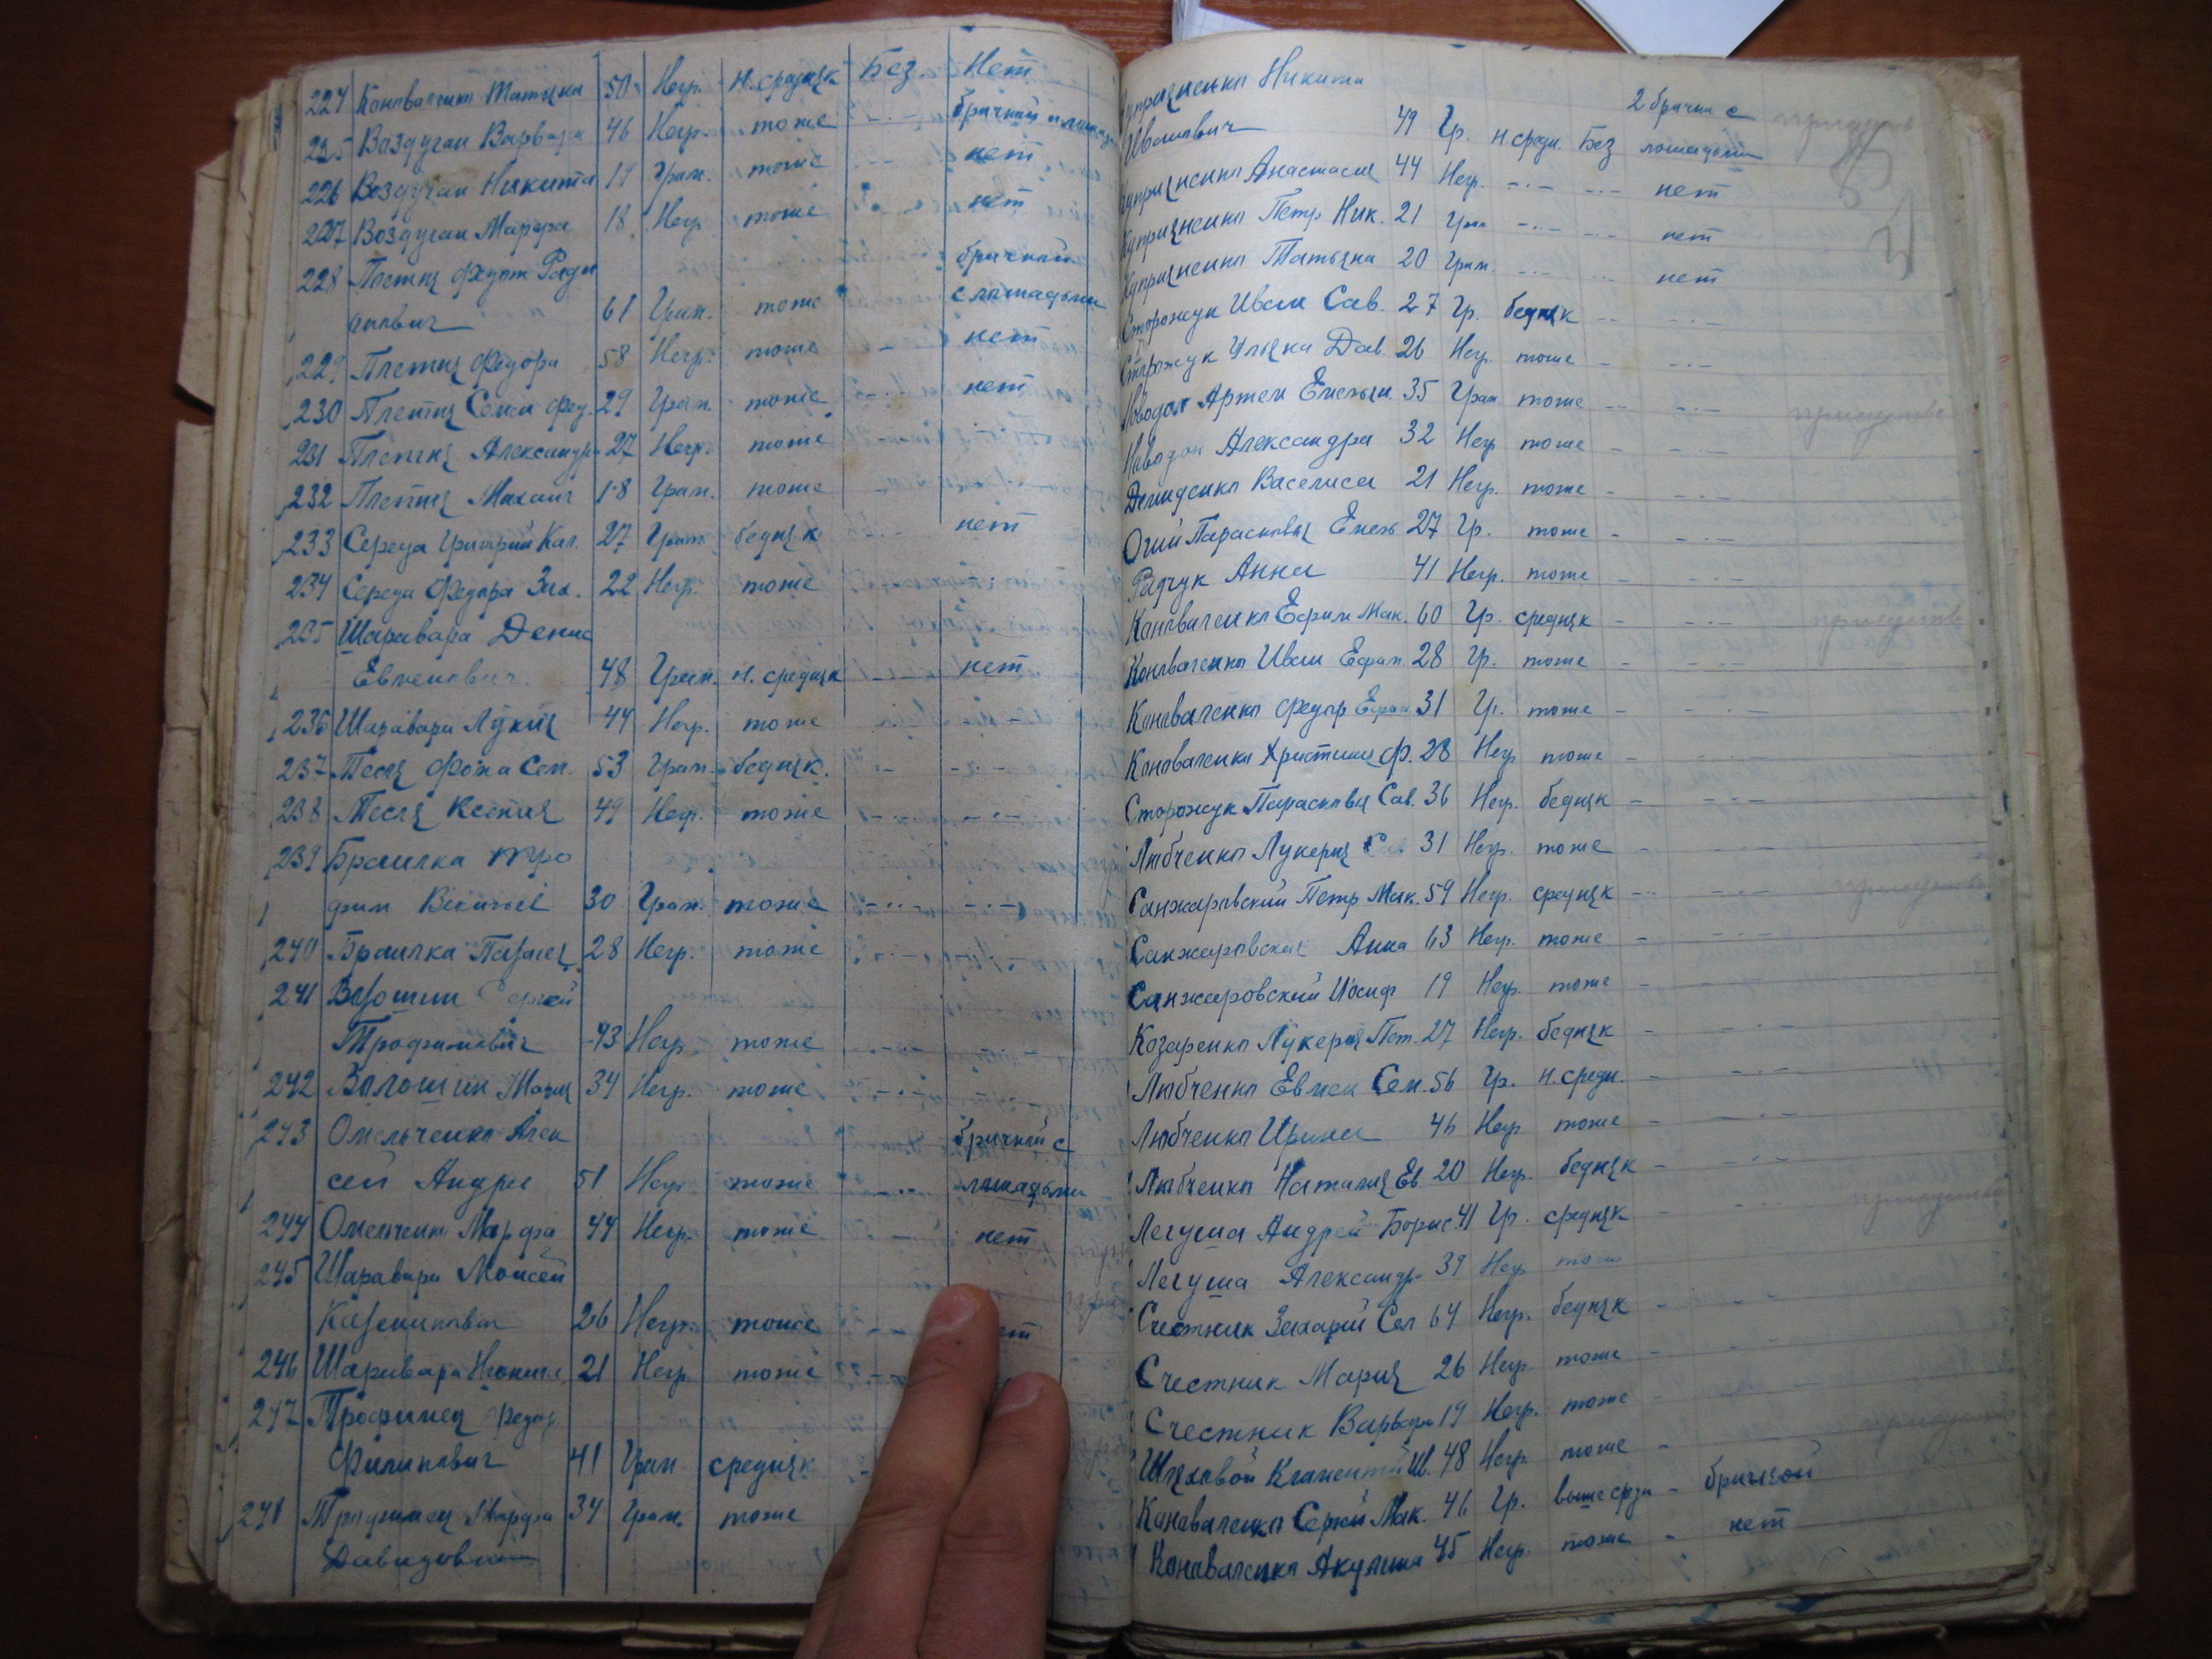 224 Коноваленко Татяна 50 Негр. н. средняк Без. Нет
225 Воздуган Варвара 46 Негр. тоже бричкой и лошадь
226 Воздуган Никита 19 Грам. тоже нет
227 Воздуган Марфа 18 Негр тоже нет
228 Плетня Федот Роди бричкой
61 Грам. тоже с лошадьми
229 Плетня Федора 58 Негр. тоже нет
230 Плетня Семен Фед. 29 Грам. тоже нет
231 Плетня Александр 27 Негр. тоже
232 Плетня Михаил 18 Грам. тоже
233 Середа Григорий Кал. 27 Грам. бедняк нет
234 Середа Федора Зах. 22 Негр. тоже
235 Шаравара Денис
Евменович 48 Грам. н. средняк нет
236 Шаравара Лукия 44 Негр. тоже
237 Тесля Фома Сем. 53 Грам. бедняк.
238 Тесля Ксения 49 Негр. тоже
239 Браилка Тро
фим 30 Грам. тоже
240 Браилка 28 Негр. тоже
241 Волошин Сергей
Трофимович 43 Негр тоже
242 Волошин Мария 34 Негр. тоже
243 Омельченко Алек бричкой с
сей Андре 51 Негр тоже лошадьми
244 Омельченко Марфа 44 Негр. тоже нет
245 Шаравара Моисей
26 Негр. тоже
246 Шаравара 21 Негр тоже
247 Трофимец Федор
Филипович 41 Грам средняк
Трофимец Марфа 34 Грам. тоже
Давидовна
Куприенко Никита 2 брички с
Иванович 49 Гр. н. средн. Без лошадьми
Куприенко Анастасия 44 Негр. -.- -.- нет
Куприенко Петр Ник. 21 Грам -.- -.- нет
Куприенко Татьяна 20 Грам. -.- -.- нет
Сторожук Иван Сав. 27 Гр. бедняк -.-
Сторожук Ульяна Дав. 26 Негр. тоже - -.-
Артем Емельян. 35 Грам. тоже -.-
Александра 32 Негр тоже - -.-
Демиденко Василиса 21 Негр. тоже - -.-
Огий Парасковья Емель 27 Гр. тоже - -.-
Радчук Анна 41 Негр. тоже - -.-
Коноваленко Ефрим Мак. 60 Гр. средняк - -.-
Коноваленко Иван Ефрам. 28 Гр. тоже - -.-
Коноваленко Федор Ефрам 31 Гр. тоже - -.-
Коноваленко Христина Ф. 28 Негр тоже - -.-
Сторожук Парасковья Сав. 36 Негр. бедняк - -.-
Любченко Лукерия 31 Негр. тоже - -.-
Санжаровский Петр Мак. 59 Негр. средняк - -.-
Санжаровская Анна 63 Негр. тоже - -.-
Санжаровский Иосиф 19 Негр. тоже - -.-
Козаренко Лукерия Пет. 27 Негр. бедняк - -.-
Любченко Евмен Сем. 56 Гр. н. средн. - -.-
Любченко Ирина 46 Негр тоже - -.-
Любченко Наталия Ев 20 Негр. бедняк - -.-
Легуша Андрей Борис. 41 Гр. средняк - -.-
Легуша Александр 39 Негр тоже
Счестник Захарий Сем 64 Негр. бедняк - -.-
Счестник Мария 26 Негр. тоже -
Счестник Варвара 19 Негр. тоже
Шляховой Климентий Ив. 48 Негр. тоже -
Коноваленко Сергей Мак. 46 Гр. выше средн - бричкой
Коноваленко Акулина 45 Негр. тоже - нет